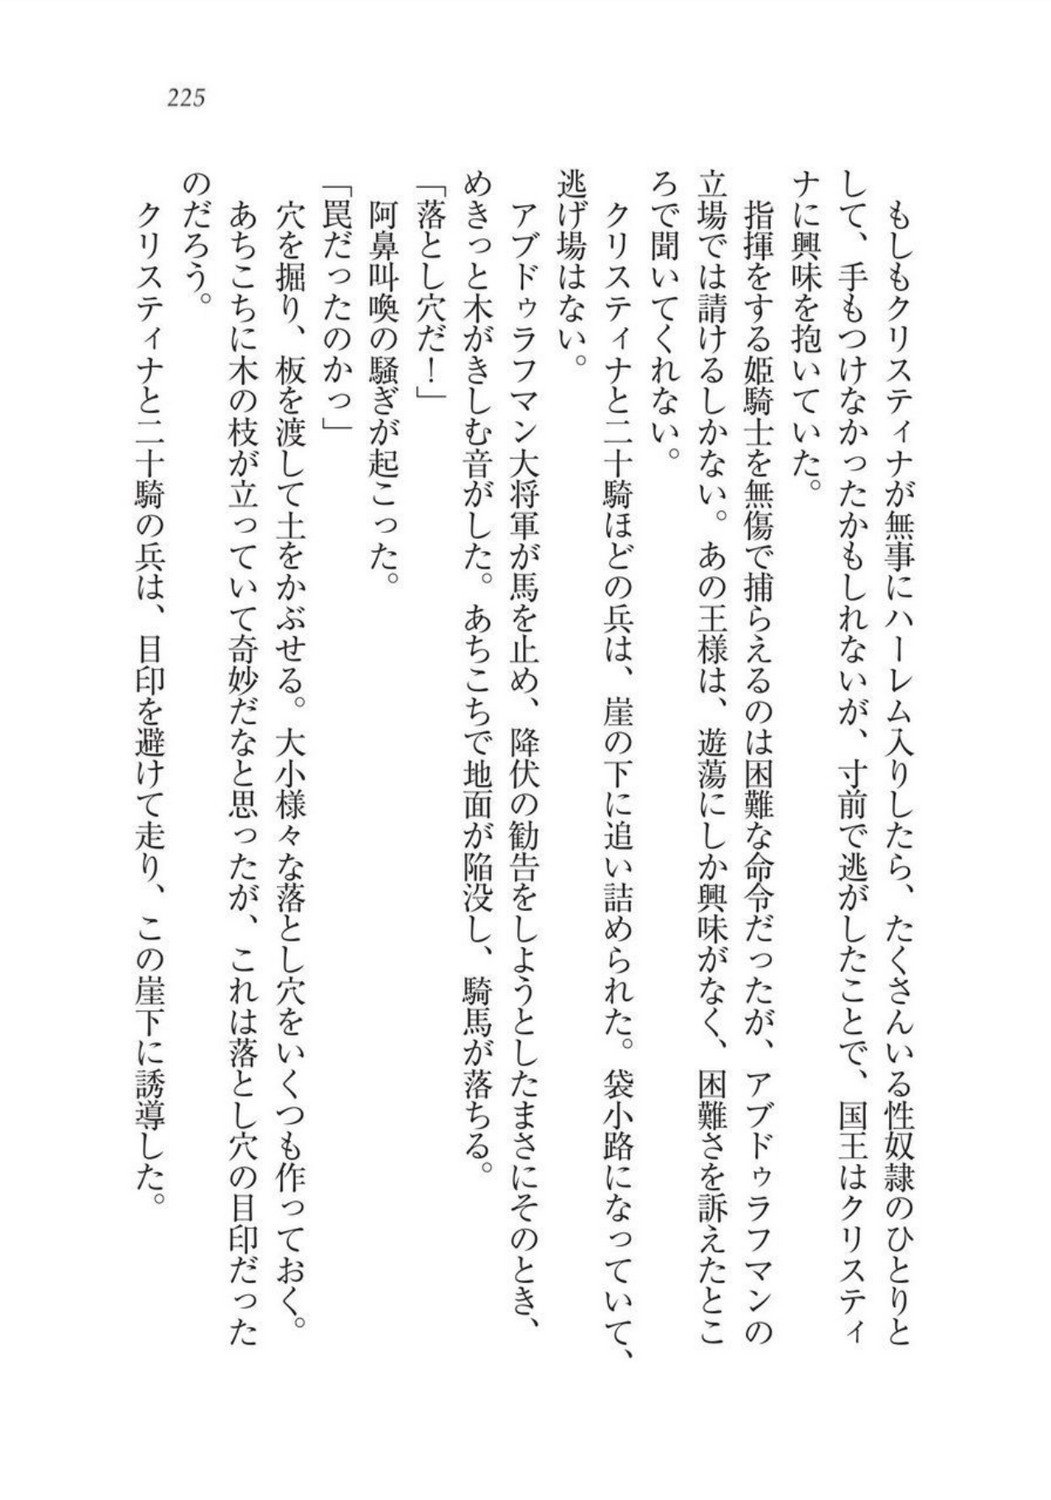 225
もしもクリスティナが無事にハーレム入りしたら、たくさんいる性奴隷のひとりと
して、手もつけなかったかもしれないが、寸前で逃がしたことで、国王はクリスティ
ナに興味を抱いていた。
指揮をする姫騎士を無傷で捕らえるのは困難な命令だったが、アブドゥラフマンの
立場では請けるしかない。あの王様は、遊蕩にしか興味がなく、困難さを訴えたとこ
ろで聞いてくれない。
クリスティナと二十騎ほどの兵は、崖の下に追い詰められた。袋小路になっていて、
逃げ場はない。
アブドゥラフマン大将軍が馬を止め、降伏の勧告をしようとしたまさにそのとき、
めきっと木がきしむ音がした。あちこちで地面が陥没し、騎馬が落ちる。
「落とし穴だ！」
阿鼻叫喚の騒ぎが起こった。
「罠だったのかっ」
穴を掘り、板を渡して土をかぶせる。大小様々な落とし穴をいくつも作っておく。
あちこちに木の枝が立っていて奇妙だなと思ったが、これは落とし穴の目印だった
のだろう。
クリスティナと二十騎の兵は、目印を避けて走り、この崖下に誘導した。